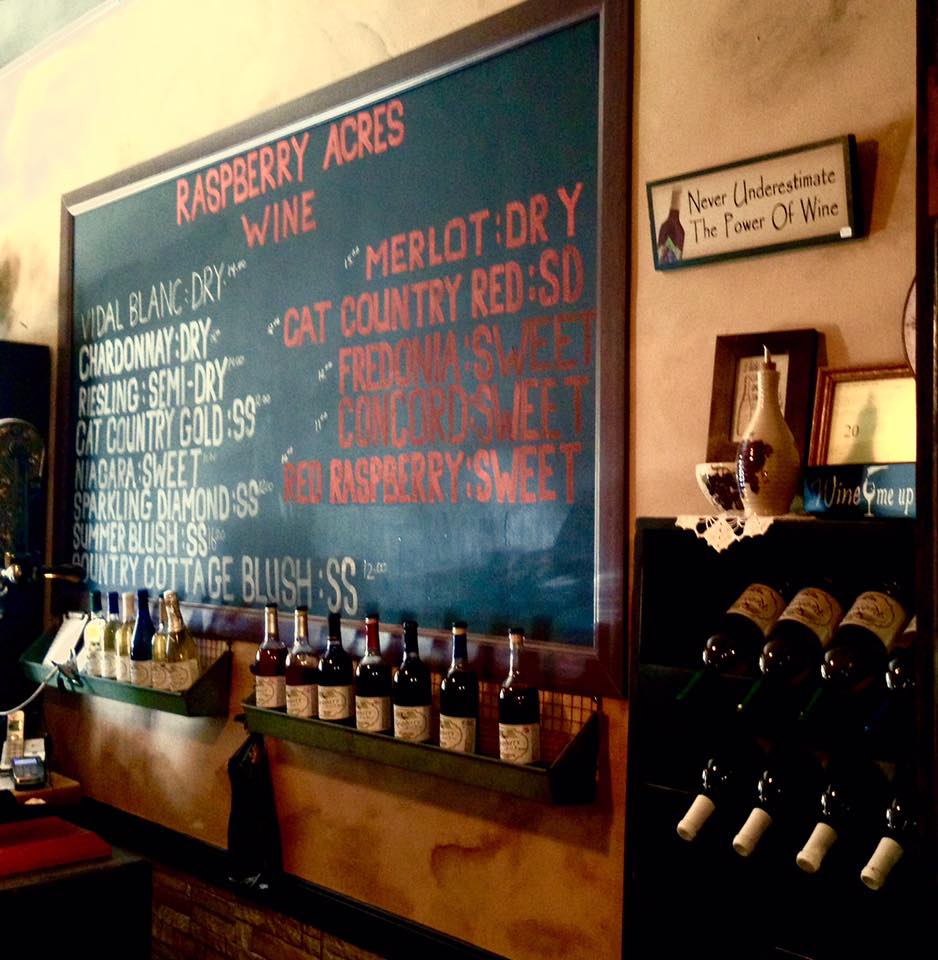 RASPBERRY ACRES
WINE
VIDAL BLANC:DRY
CHARDONNAY:DRY
RIESLING:SEMI-DRY
CAT COUNTRY GOLD:SS
NIAGARA:SWEET
SPARKLING DIAMOND:SS
SUMMER BLUSH:SS
COUNTRY COTTAGE BLUSH:SS 12.00
MERLOT:DRY
CAT COUNTRY RED:SD
FREDONIA:SWEET
CONCORD:SWEET
RED RASPBERRY:SWEET
Never Underestimate
The Power Of Wine
20
Wine me up